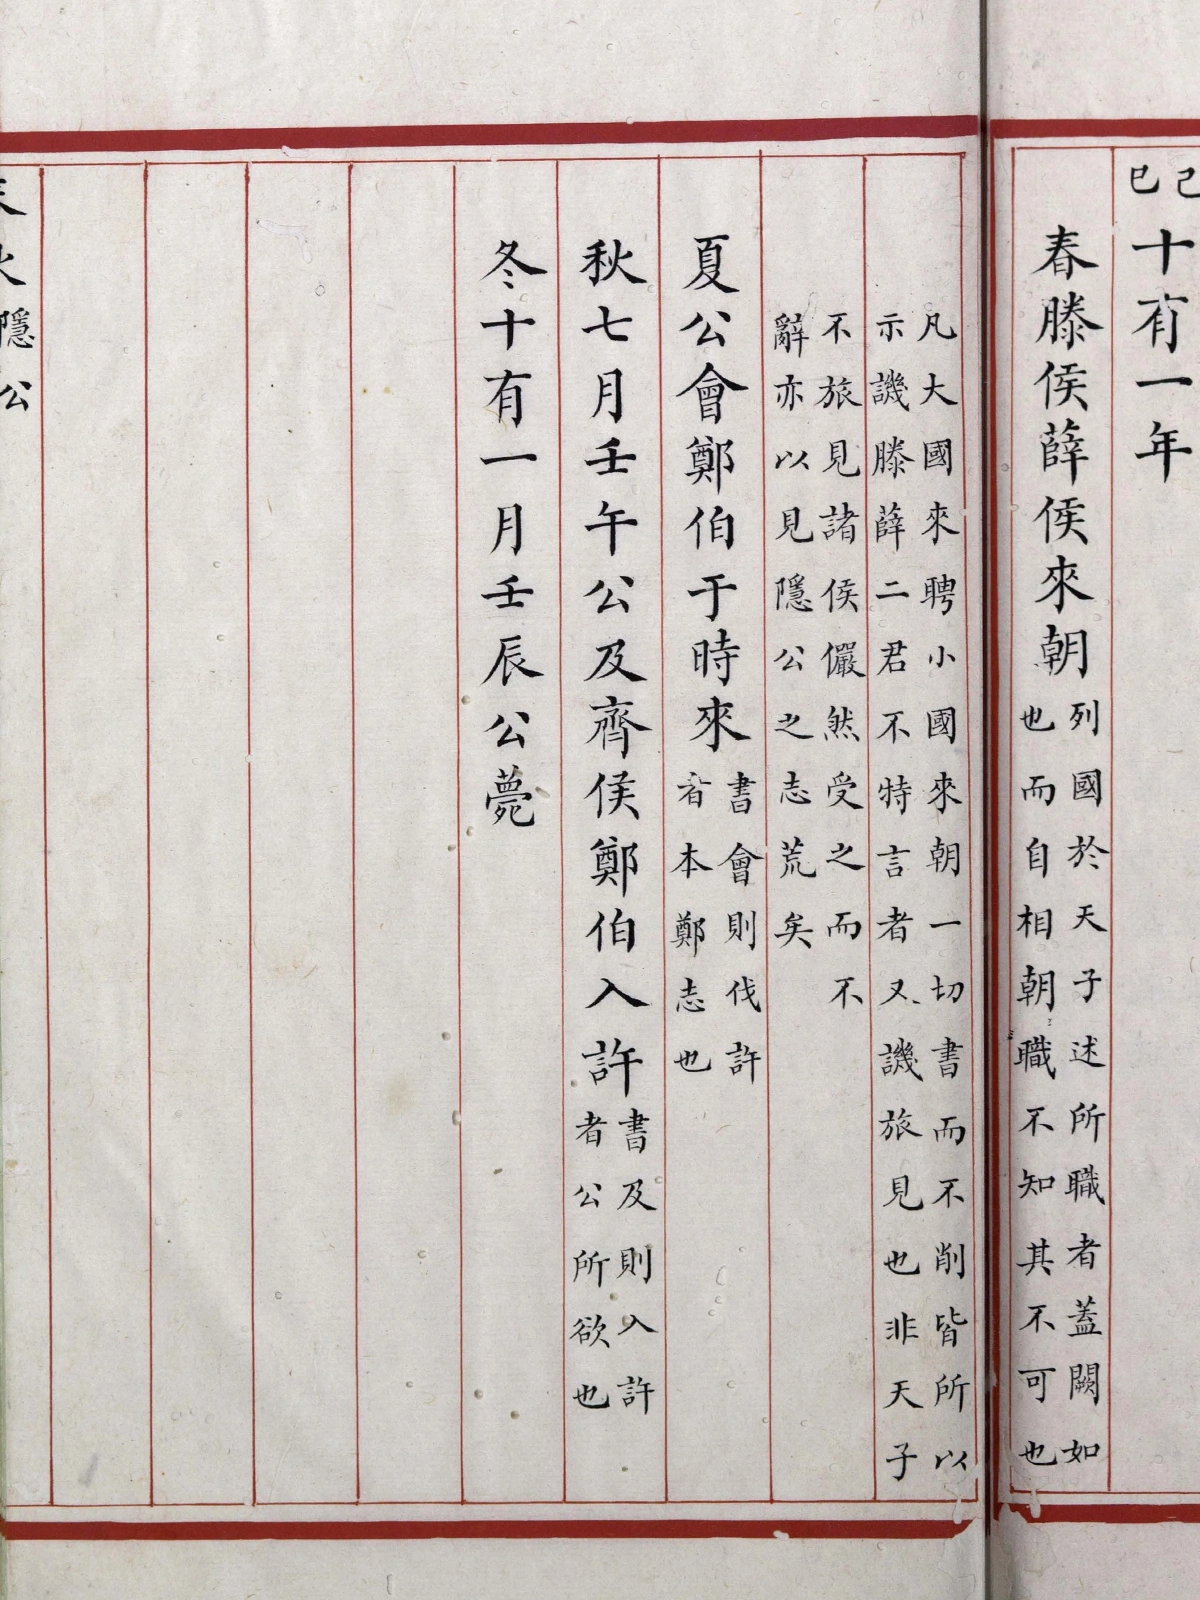 己巳十有一年
春滕侯薛侯來朝列國於天子述所職者蓋闕如
也而自相朝職不知其不可也
凡大國來聘小國來朝一切書而不削皆所以
示譏滕薛二君不特言者又譏旅見也非天子
不旅見諸侯儼然受之而不
辭亦以見隱公之志荒矣
夏公會鄭伯于時來書會則伐許
者本鄭志也
秋七月壬午公及齊侯鄭伯入許書及則入許
者公所欲也
冬十有一月壬辰公薨
隱公